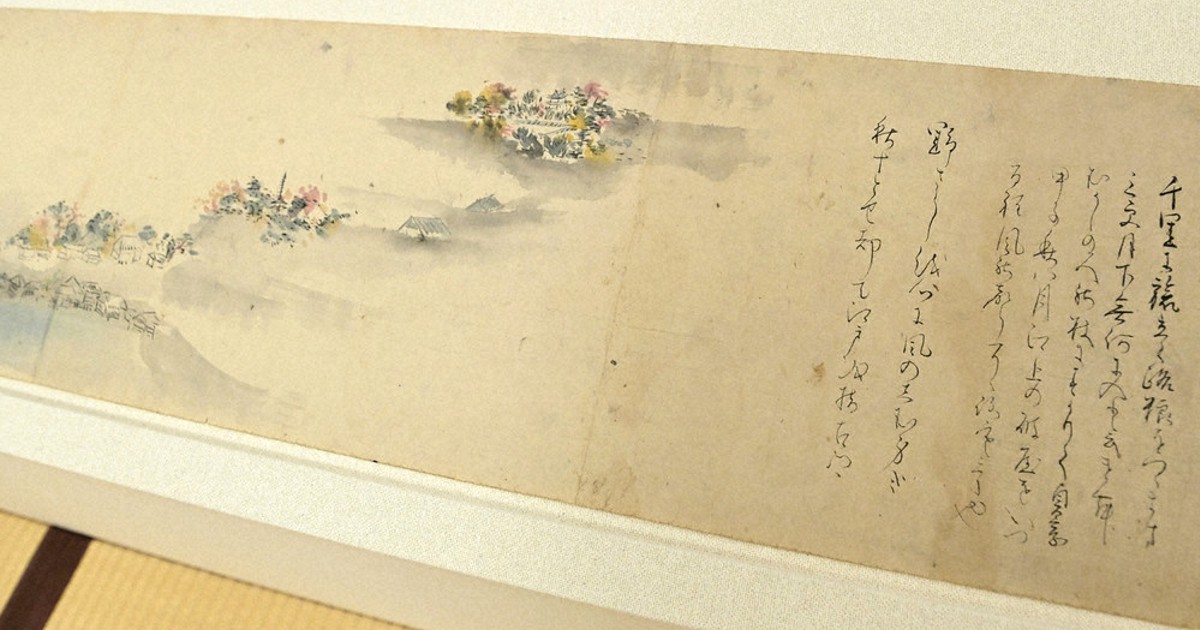 千里に旅立て路粮をつゝます
三更月下無何に入と云けむ
むかしの人の杖にすかりて貞享
甲子秋八月江上の破屋をいつ
る程風の声そゝろ寒け也
野さらしを心に風のしむ身哉
秋十とせ却て江戸を指古郷